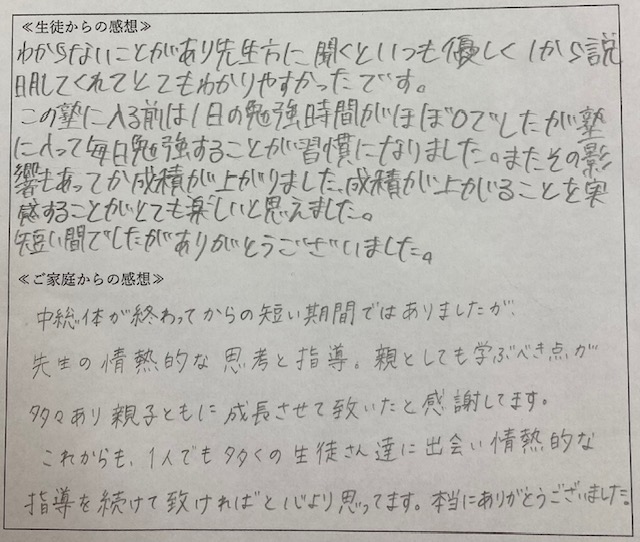 ≪生徒からの感想≫
わからないことがあり先生方に聞くといつも優しく1から説
明してくれてとてもわかりやすかったです。
この塾に入る前は1日の勉強時間がほぼ0でしたが塾
に入って毎日勉強することが習慣になりました。またその影
響もあってか成積が上がりました。成積が上がることを実
感することがとても楽しいと思えました。
短い間でしたがありがとうございました。
≪ご家庭からの感想≫
中総体が終わってからの短い期間ではありましたが、
先生の情熱的な思考と指導。親としても学ぶべき点が
多々あり親子ともに成長させて致いたと感謝してます。
これからも、1人でも多くの生徒さん達に出会い情熱的な
指導を続けて致ければと心より思ってます。本当にありがとうございました。